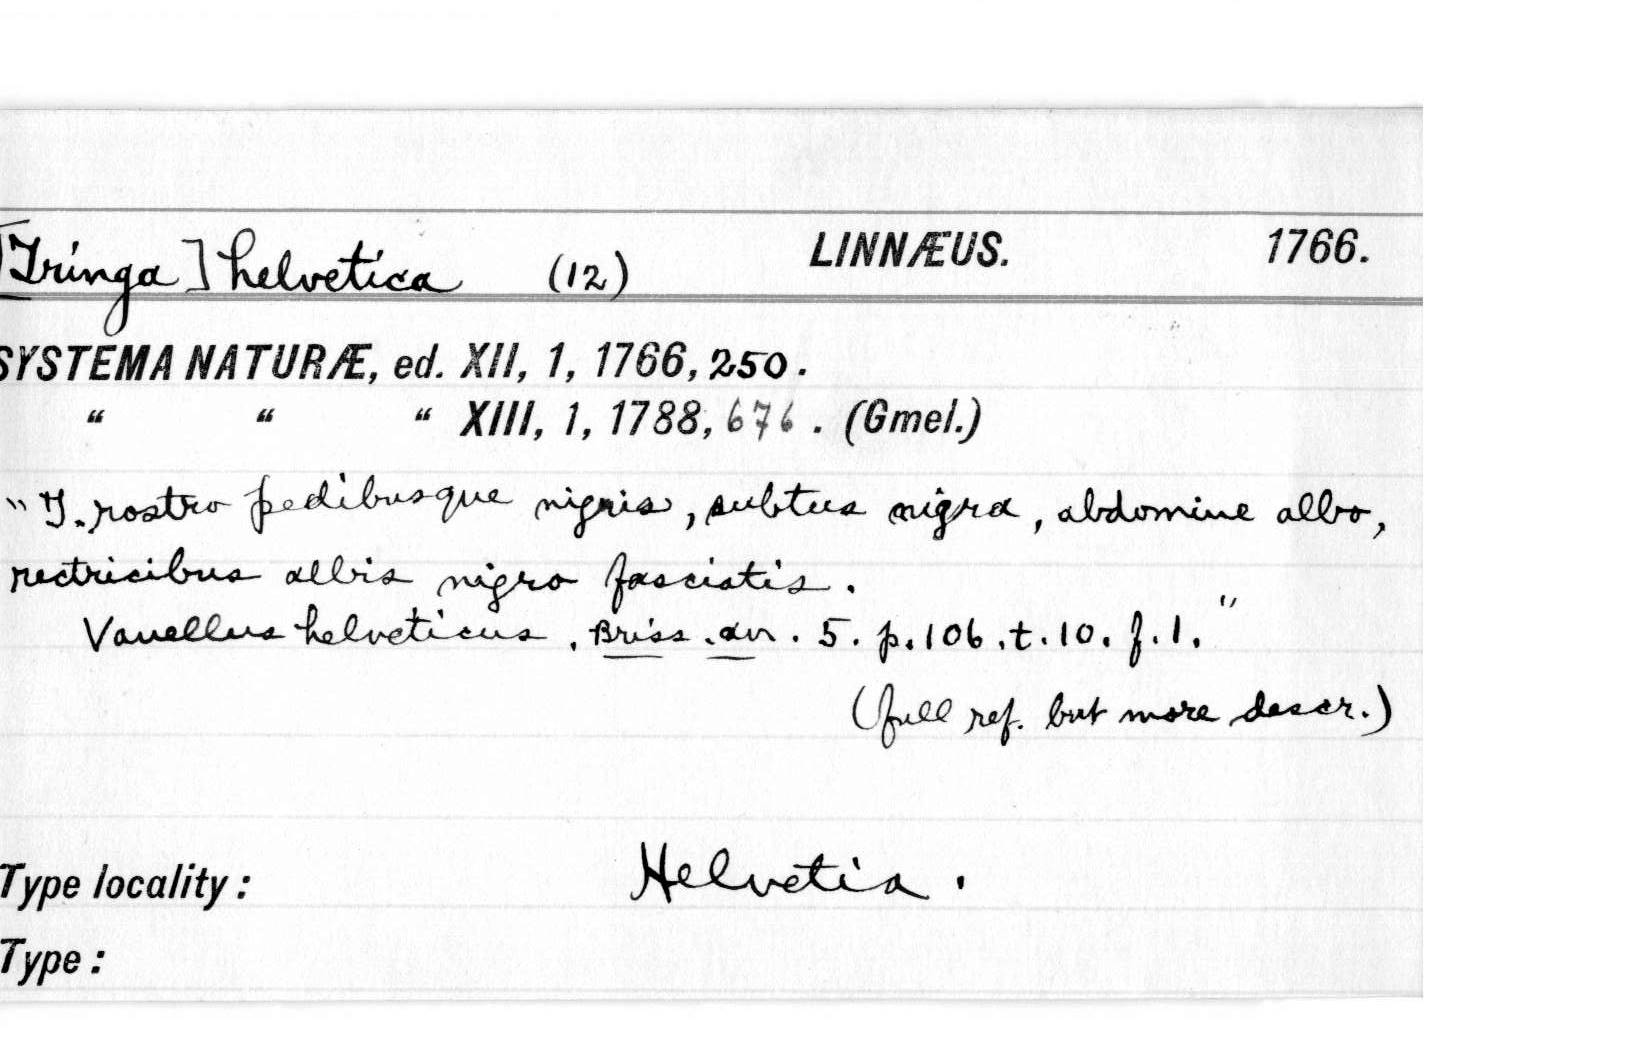 [Tringa] helvetica (12) LINNÆUS. 1766.
SYSTEMA NATURÆ, ed. XII, 1, 1766, 250.
" " " XIII, 1, 1788, 676. (Gmel.)
"T. rostro pedibusque nigris, subtus nigra, abdomine albo,
rectricibus albis nigro fasciatis.
Vanellus helveticus. Briss. av. 5. p. 106. t. 10. f. 1."
(full ref. but more descr.)
Type locality: Helvetia.
Type: